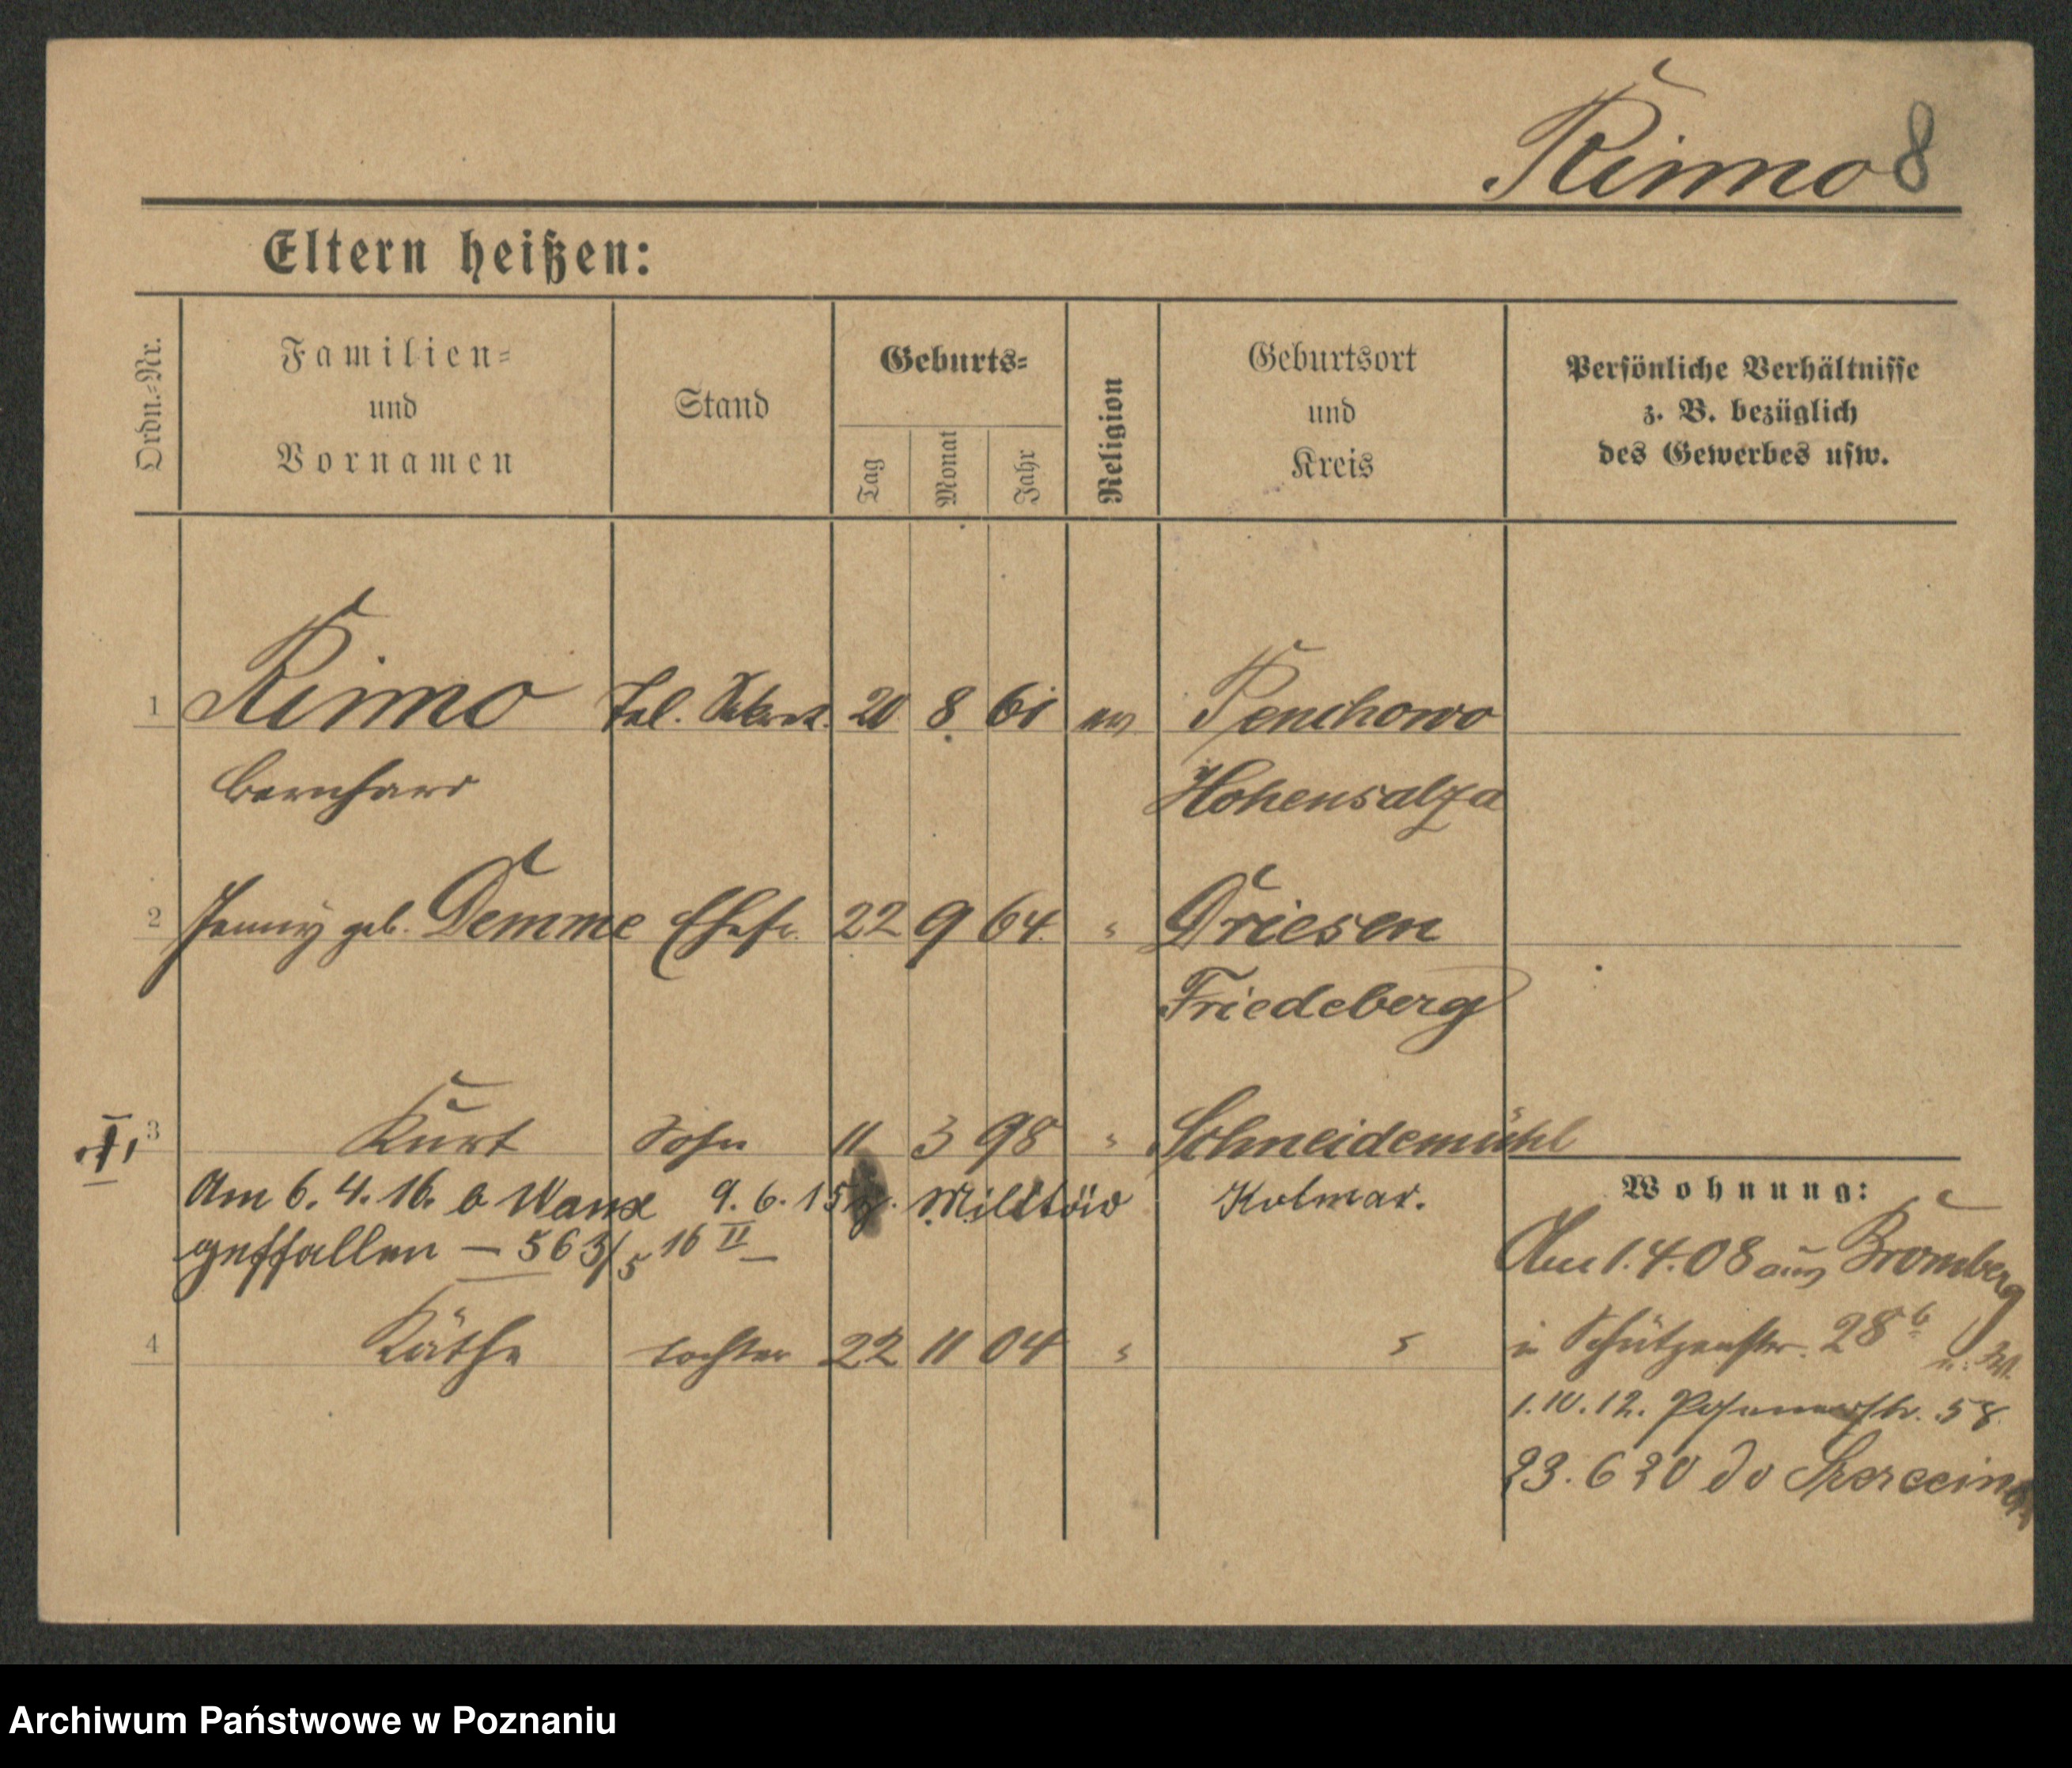 Rimo 8
Eltern heißen:
Ordn.-Nr.
Familien-
und
Vornamen
Stand
Geburts-
Tag
Monat
Jahr
Religion
Geburtsort
und
Kreis
Persönliche Verhältnisse
z. B. bezüglich
des Gewerbes usw.
1 Rimo Tel. 20 8 61 ev Penchowo
Bernhard Hohensalza
2 Jenny geb. Demme Ehefr. 22 9 64 " Driesen
Friedeberg
3 Kurt Sohn 11 3 98 " Schneidemühl
Am 6. 4. 16. 9. 6. 15 z. Militär Kolmar.
geffallen — 563/5 16 II —
4 Käthe Tochter 22 11 04 " "
Wohnung:
Am 1.4.08 aus Bromberg
in Schützenstr. 28b
1.10.12. Posenerstr. 58
23.620 do
Archiwum Państwowe w Poznaniu